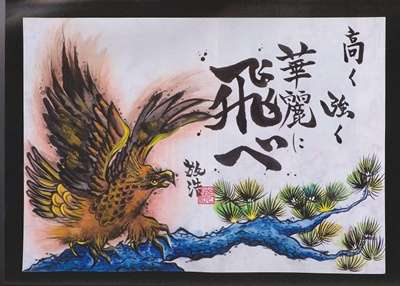 高く強く
華麗に
飛べ